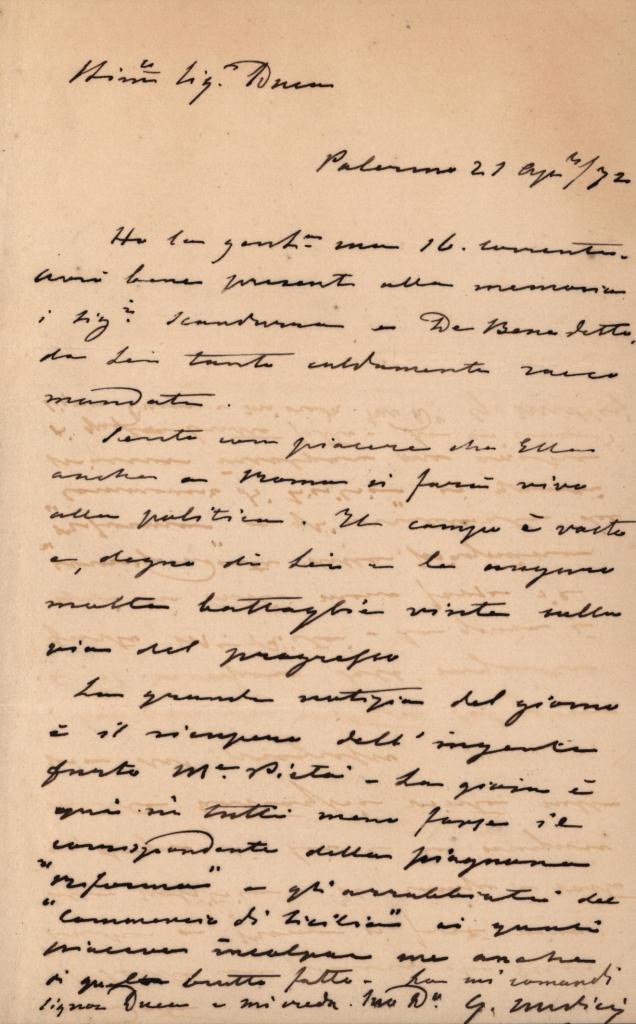 Ill.mo Sig.r Duca
Palermo 21 /72
Ho la gent.a sua 16. corrente.
avrò bene presenti alla memoria
i Sig.ri Scandurra e De Benedetto,
da Lei tanto caldamente racco
mandati.
Sento com piacere che Ella
anche a Roma si farà vivo
alla politica. Il campo è vasto
e, degno di Lei e le auguro
molte battaglie vinte sulla
via del progresso
La grande notizia del giorno
è il ricupero dell'ingente
furto M.te Pietà - La gioja è
quì in tutti meno forse il
corrispondente della piagnona
"riforma" e gli arrabbiati del
"Commercio di Sicilia" ai quali
piaceva incolpar me anche
di quello brutto fatto - La mi comandi
Signor Duca e mi creda. Suo D.o G. Medici